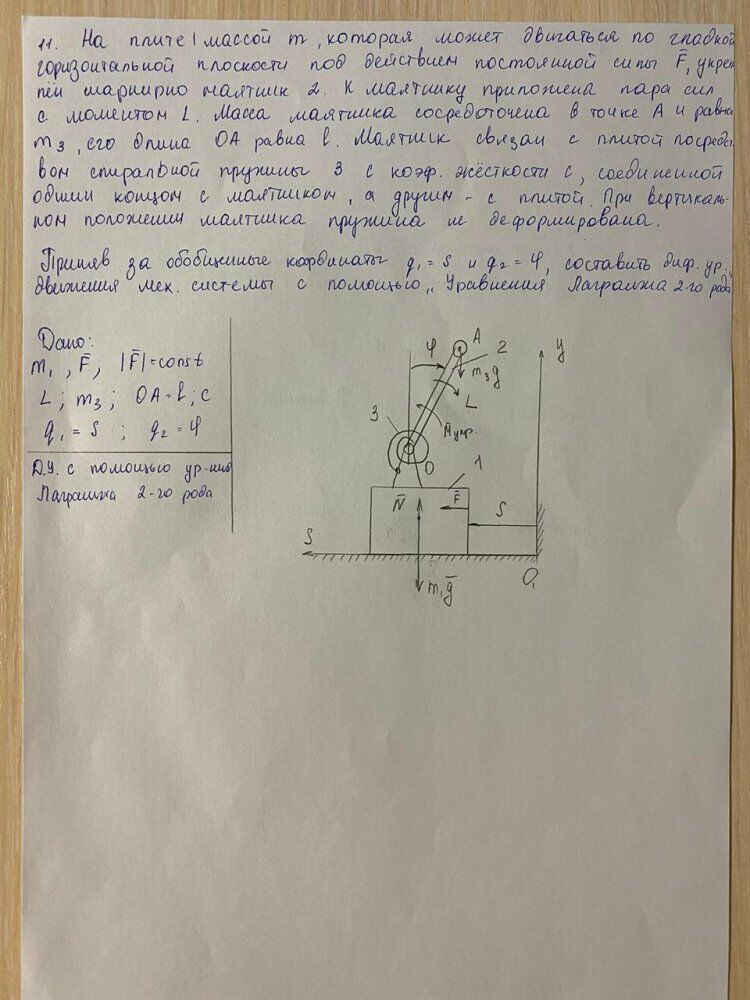 11. На плите 1 массой m, которая может двигаться по гладкой
горизонтальной плоскости под действием постоянной силы F̄, укреп
лён шарнирно маятник 2. К маятнику приложена пара сил
с моментом L. Масса маятника сосредоточена в точке А и равна
m₃, его длина ОА равна l. Маятник связан с плитой посредст
вом спиральной пружины 3 с коэф. жёсткости c, соединенной
одним концом с маятником, а другим - с плитой. При вертикаль-
ном положении маятника пружина не деформирована.
Приняв за обобщенные координаты q₁ = S и q₂ = φ, составить диф. ур.
движения мех. системы с помощью „Уравнения Лагранжа 2-го рода
Дано:
m₁, F̄, |F̄|=const
L; m₃; OA=l; c
q₁ = S ; q₂ = φ
Д.У. с помощью ур-ния
Лагранжа 2-го рода
φ
A
2
y
m₃g
L
3
M̄упр.
O
1
N̄
F̄
S
S
O₁
m₁ḡ